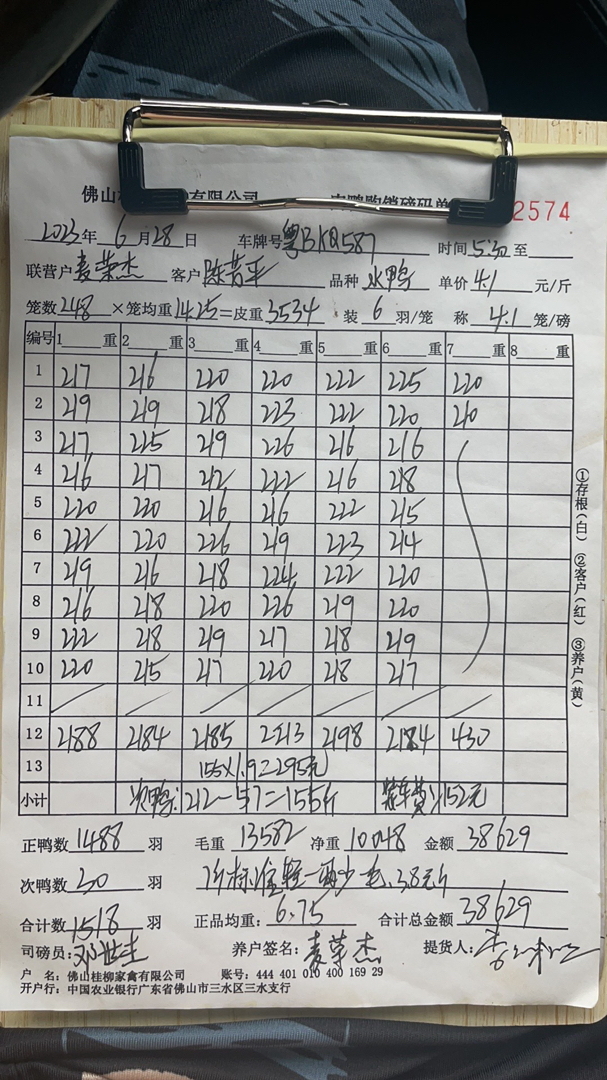 佛山桂柳家禽有限公司 肉鸭购销磅码单 2574
2023年6月28日 车牌号粤BKQ587 时间5:30至
联营户麦荣杰 客户 品种水鸭 单价4.1元/斤
笼数248×笼均重14.25=皮重3534 装6羽/笼 称4.1笼/磅
编号 1 重 2 重 3 重 4 重 5 重 6 重 7 重 8 重
1 217 216 220 220 222 225 220
2 219 219 218 223 222 220 210
3 217 225 219 226 216 216
4 216 217 212 222 216 218
5 220 220 216 216 222 215
6 222 220 226 219 223 214
7 219 216 218 224 222 220
8 216 218 220 226 219 220
9 222 218 219 217 218 219
10 220 215 217 220 218 217
11
12 2188 2184 2185 2213 2198 2184 430
13 155×1.9=295元
小计 次鸭:212-57=155斤 装车费:152元
正鸭数1488羽 毛重13582 净重10048 金额38629
次鸭数30羽 3.8元/斤
合计数1518羽 正品均重:6.75 合计总金额38629
司磅员:邓世 养户签名:麦荣杰 提货人:
户 名:佛山桂柳家禽有限公司 账号:444 401 010 400 169 29
开户行:中国农业银行广东省佛山市三水区三水支行
①存根(白) ②客户(红) ③养户(黄)